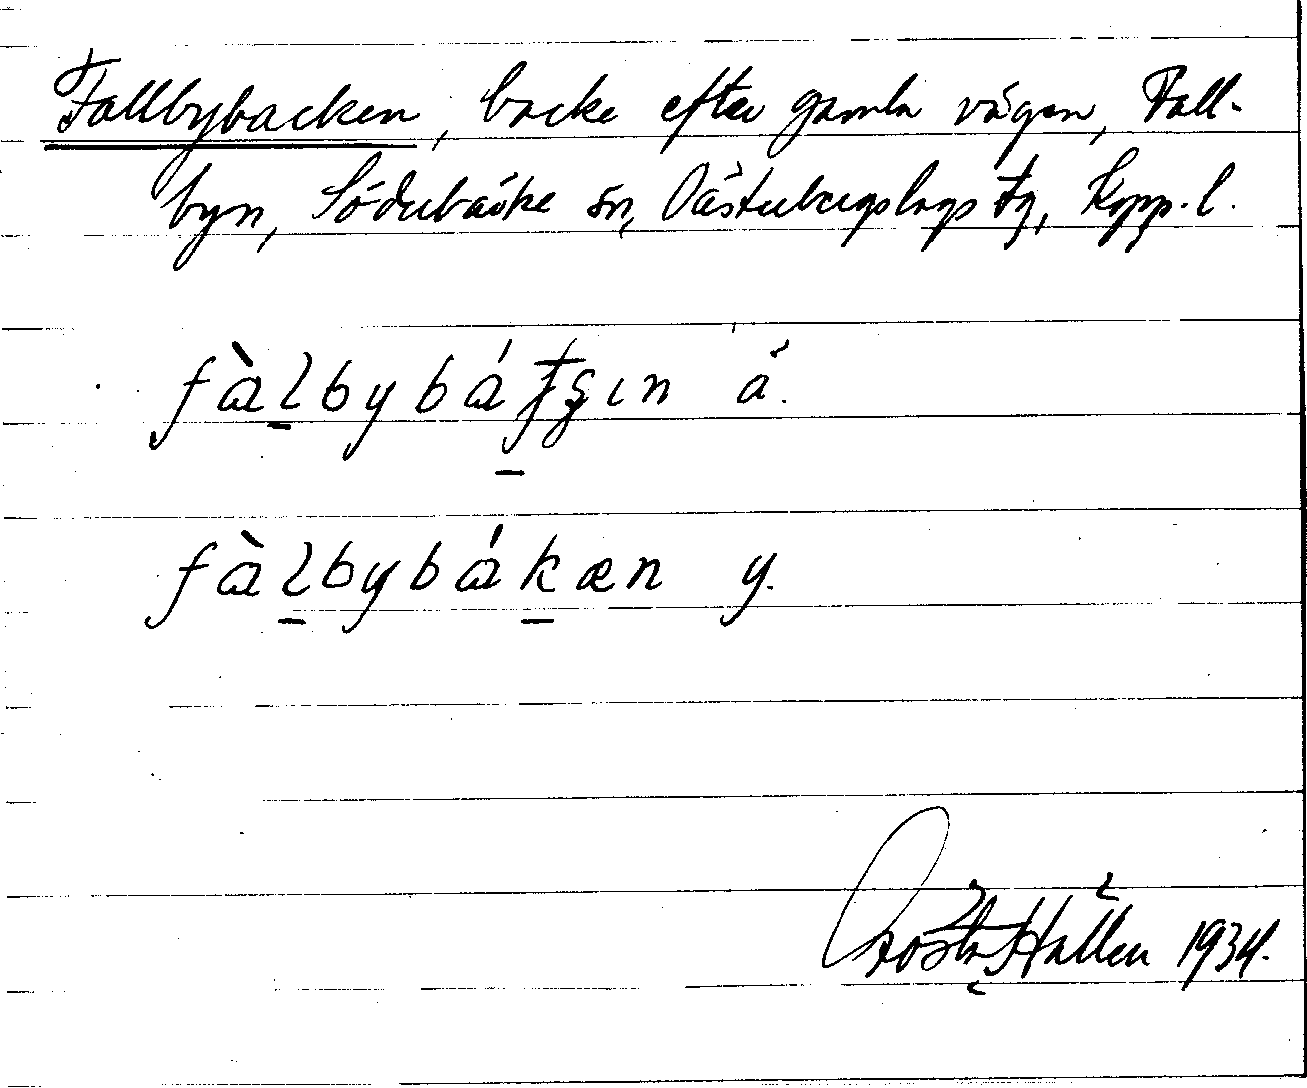 Fallbybacken, backe efter gamla vägen, Fall-
byn, Söderbärke sn, Västerbergslags tg, Kopp. l.
fàlbybáʈʂın å.
fàlbybákæn y.
Gösta Hallén 1934.